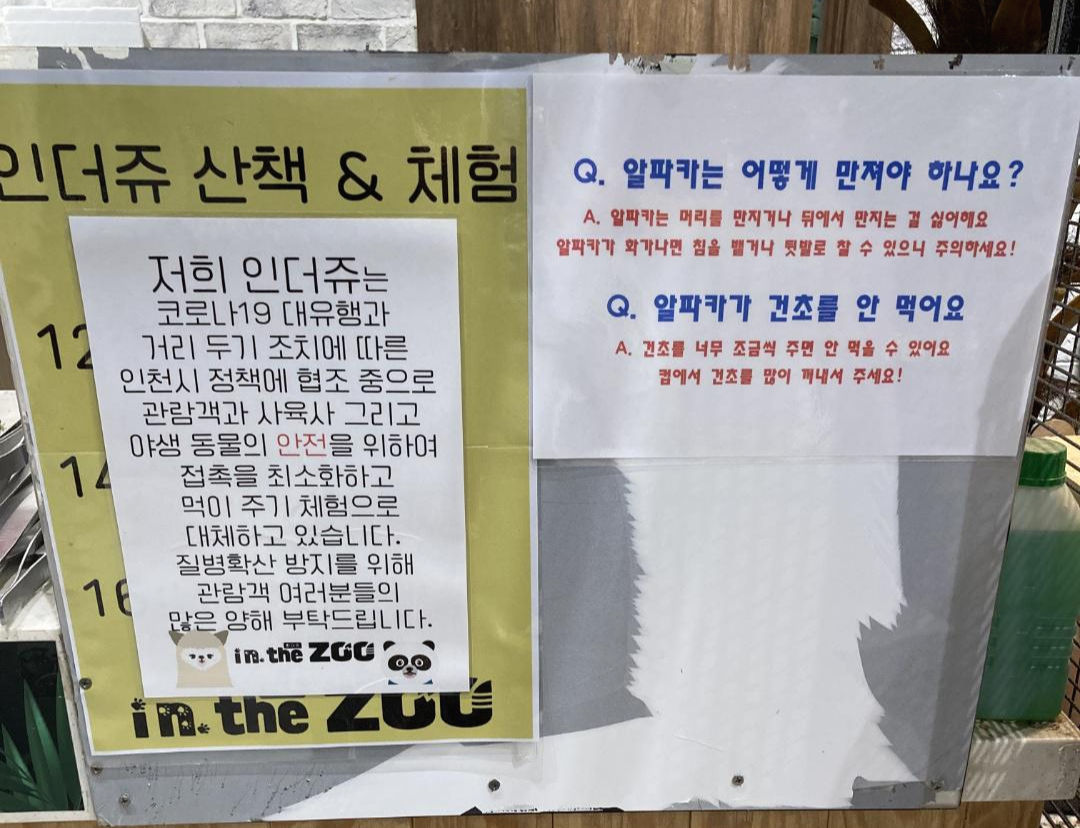 인더쥬 산책 & 체험
12
14
16
저희 인더쥬는
코로나19 대유행과
거리 두기 조치에 따른
인천시 정책에 협조 중으로
관람객과 사육사 그리고
야생 동물의 안전을 위하여
접촉을 최소화하고
먹이 주기 체험으로
대체하고 있습니다.
질병확산 방지를 위해
관람객 여러분들의
많은 양해 부탁드립니다.
in.the ZOO
in.the ZOO
Q. 알파카는 어떻게 만져야 하나요?
A. 알파카는 머리를 만지거나 뒤에서 만지는 걸 싫어해요
알파카가 화가나면 침을 뱉거나 뒷발로 찰 수 있으니 주의하세요!
Q. 알파카가 건초를 안 먹어요
A. 건초를 너무 조금씩 주면 안 먹을 수 있어요
컵에서 건초를 많이 꺼내서 주세요!